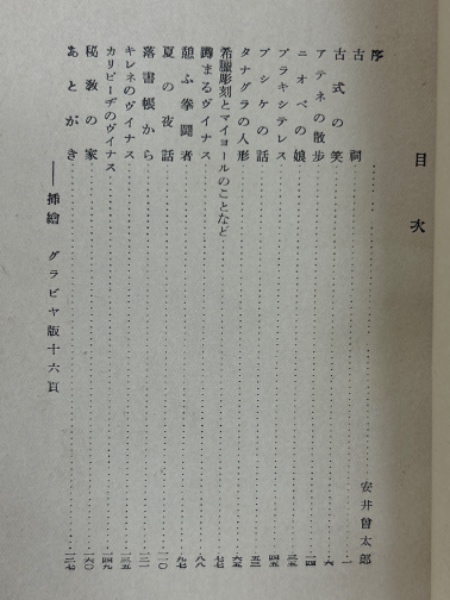 目次
序 安井曾太郎
古祠 一
古式の笑 六
アテネの散歩 一四
ニオベの娘 三五
プラキシテレス 四五
プシケの話 五三
タナグラの人形 六五
希臘彫刻とマイヨールのことなど 七七
蹲まるヴイナス 八八
憩ふ拳闘者 九七
夏の夜話 一一〇
落書帳から 一二一
キレネのヴイナス 一三五
カリピーヂのヴイナス 一四九
秘敎の家 一六〇
あとがき 一七七
——揷繪 グラビヤ版十六頁